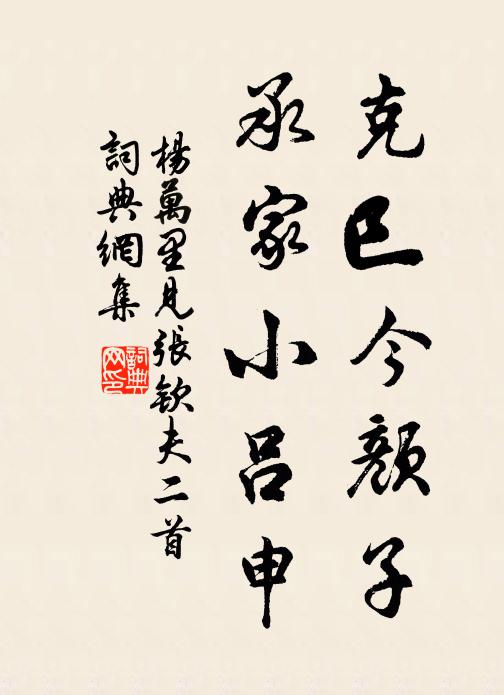 克已今顔子
承家小呂申
楊萬里見張欽夫二首
詞典網集
詞典網印